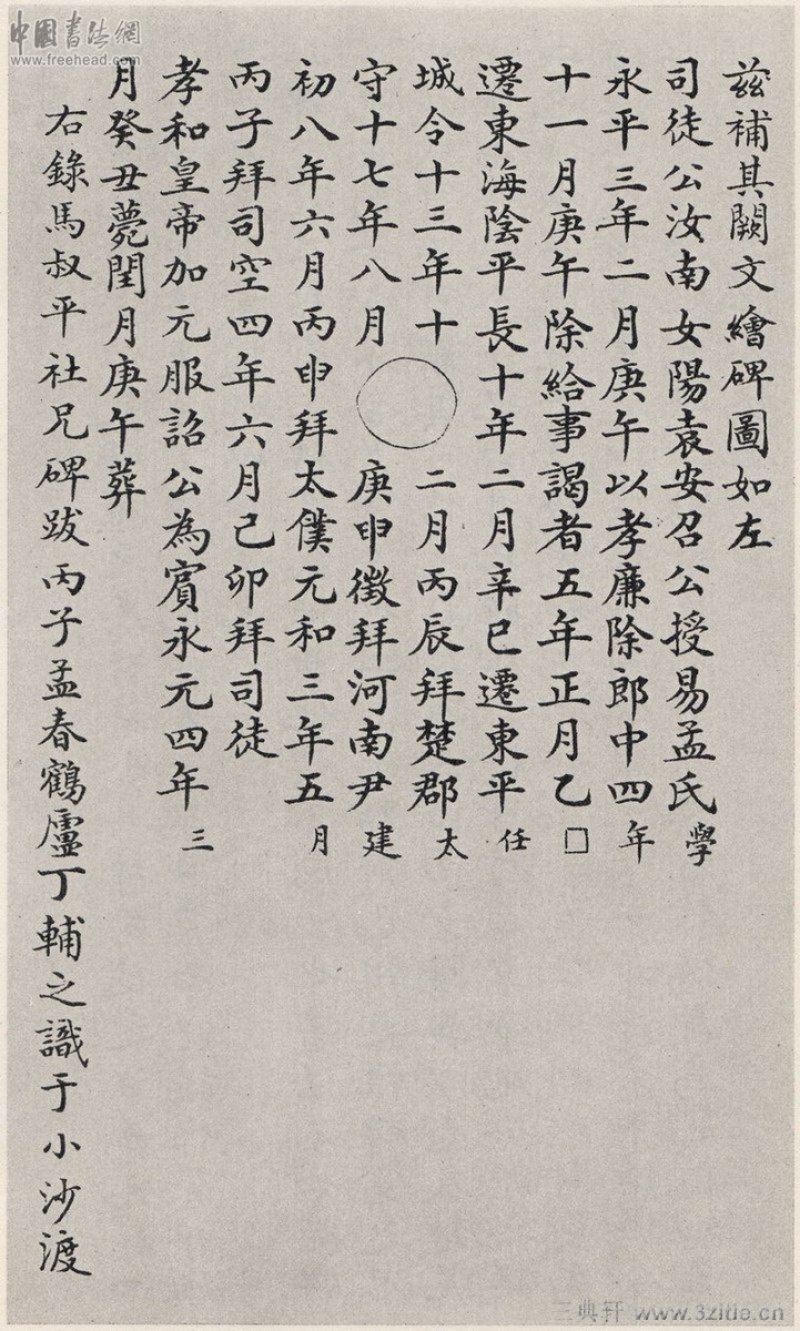 中国书法網
www.freehead.com
茲補其闕文繪碑圖如左
司徒公汝南女陽袁安召公授易孟氏學
永平三年二月庚午以孝廉除郎中四年
十一月庚午除給事謁者五年正月乙□
遷東海陰平長十年二月辛巳遷東平任
城令十三年十二月丙辰拜楚郡太
守十七年八月庚申徵拜河南尹建
初八年六月丙申拜太僕元和三年五月
丙子拜司空四年六月己卯拜司徒
孝和皇帝加元服詔公為賓永元四年三
月癸丑薨閏月庚午葬
右錄馬叔平社兄碑跋丙子孟春鶴廬丁輔之識于小沙渡
三典轩 www.3zitie.cn